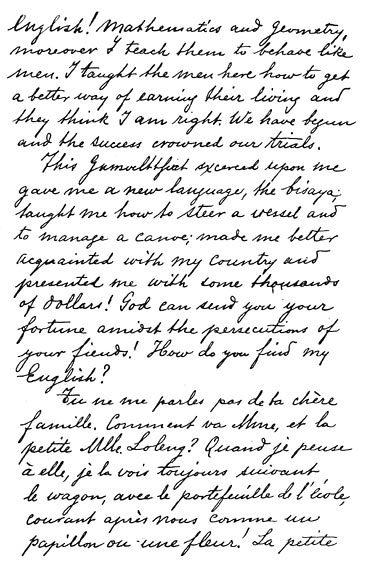 English! Mathematics and Geometry,
moreover I teach them to behave like
men. I taught the men here how to get
a better way of earning their living and
they think I am right. We have begun
and the success crowned our trials.
This Gewalttat excerced upon me
gave me a new language, the bisaya;
taught me how to steer a vessel and
to manage a canoe; made me better
acquainted with my country and
presented me with some thousands
of dollars! God can send you your
fortune amidst the persecutions of
your fiends! How do you find my
English?
Tu ne me parles pas de ta chère
famille. Comment va Mme, et la
petite Mlle. Loleng? Quand je pense
à elle, je la vois toujours suivant
le wagon, avec le portefeuille de l'école,
courant après nous comme un
papillon ou une fleur! La petite